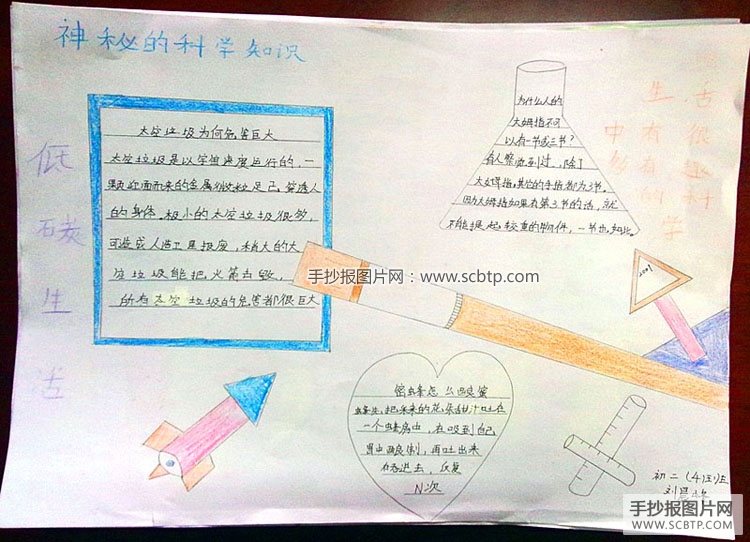 神秘的科学知识
低
碳
生
活
太空垃圾为何危害巨大
太空垃圾是以宇宙速度运行的，一
颗迎面而来的金属微粒足已，穿透人
的身体，极小的太空垃圾很多，
可造成人造卫星报废，稍大的太
空垃圾能把火箭击毁，
所有太空垃圾的危害都很巨大
为什么人的
大姆指不可
以有一节或三节？
有人察觉到过，除了
大姆指，其它的手指都为3节。
因为大姆指如果有第3节的话，就
不能提起较重的物件，一节也如此。
生
活
中
有
很
多
有
趣
的
科
学
手抄报图片网：www.scbtp.com
蜜蜂怎么酿蜜
蜜蜂先把采来的花朵甜汁吐在
一个蜂房中，在吸到自己
胃中调制，再吐出来
在吞进去，反复
N次
初二（4）班
手抄报图片网
WWW.SCBTP.COM